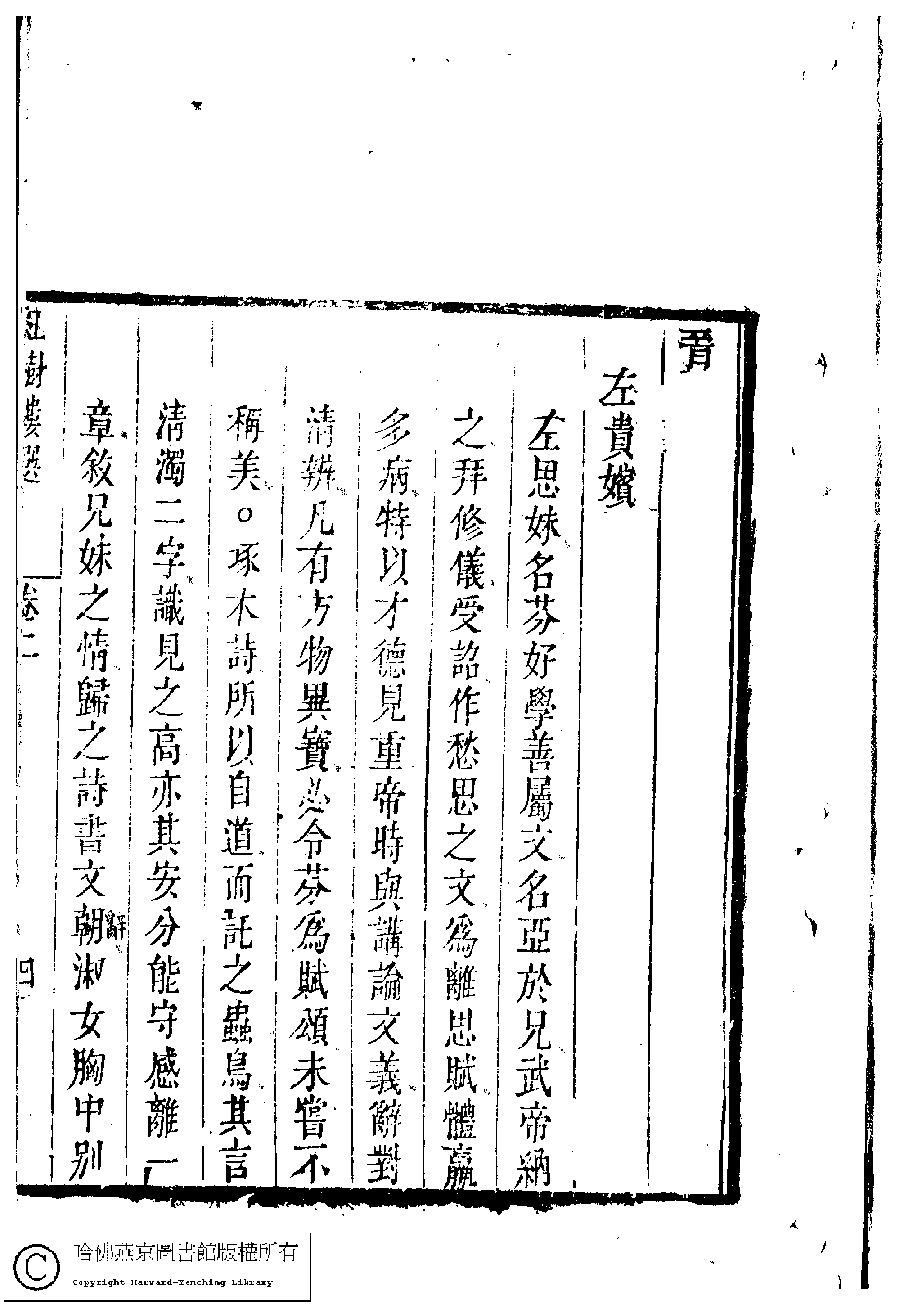 晉
左貴嬪
左思妹名芬好學善屬文名亞於兄武帝納
之拜修儀受詔作愁思之文爲離思賦體羸
多病特以才德見重帝時與講論文義辭對
清辨凡有方物異寶必令芬爲賦頌未嘗不
稱美○琢木詩所以自道而託之蟲鳥其言
清濁二字識見之高亦其安分能守感離一
章敘兄妹之情歸之詩書文朝辭淑女胸中别
紅樹樓選 卷二 四
哈佛燕京圖書館版權所有
Copyright Harvard-Yenching Library